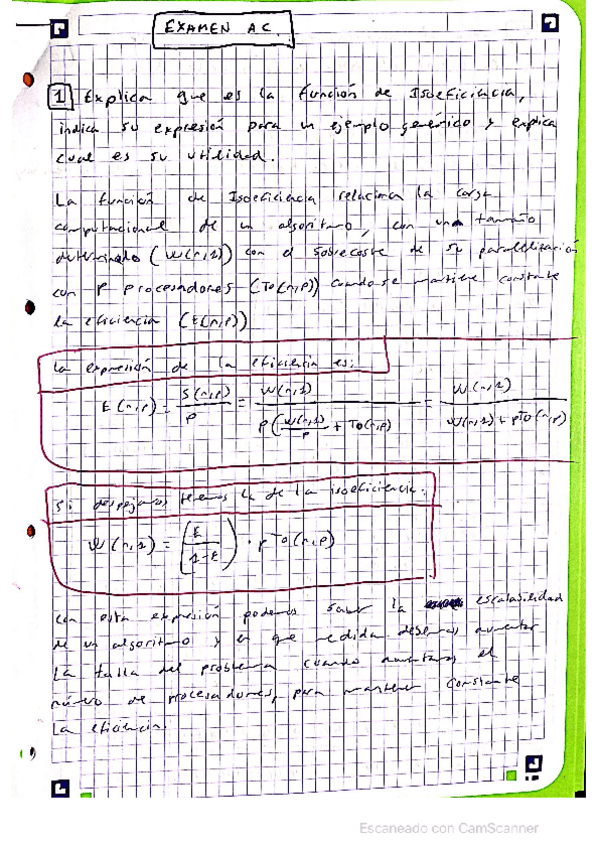 EXAMEN AC.
1 Explica que es la función de Isoeficiencia,
indica su expresión para un ejemplo genérico y explica
cual es su utilidad.
La función de Isoeficiencia relaciona la carga
computacional de un algoritmo, con una tamaño
determinado (W(n,1)) con el sobrecoste de su paralelización
con P procesadores (To(n,p)) cuando se mantiene constante
la eficiencia (E(n,p))
la expresión de la eficiencia es:
E(n,p) = S(n,p)/P = W(n,1)/(P(W(n,1)/P + To(n,p))) = W(n,1)/(W(n,1) + pTo(n,p))
Si despejamos tenemos la de la isoeficiencia:
W(n,1) = (E/(1-E)) · pTo(n,p)
con esta expresión podemos saber la escalabilidad
de un algoritmo y en que medida debemos aumentar
la talla del problema cuando aumentamos el
número de procesadores, para mantener constante
la eficiencia.
Escaneado con CamScanner